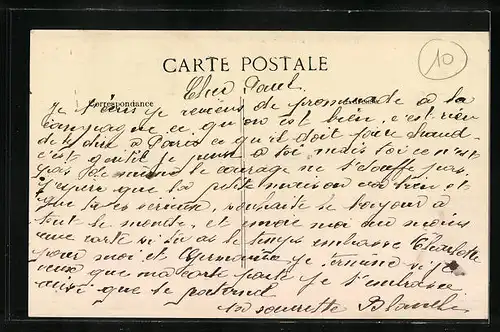 10
CARTE POSTALE
Correspondance
Cher Paul
Je viens je reviens de promenade à la
campagne ce qu'on est bien, c'est rien
de le dire à Paris ce qu'il doit faire chaud
c'est gentil je pense à toi mais toi ce n'est
pas le courage ne t'étouffe pas
J'espère que ta petite maison va bien et
que tu es sérieux, souhaite le bonjour à
tout le monde, et envoie moi au moins
une carte si tu as le temps embrasse Charlotte
pour moi et Germaine je termine si je
veux que ma carte parte je t'embrasse
ainsi que le
ta sœurette Blanche